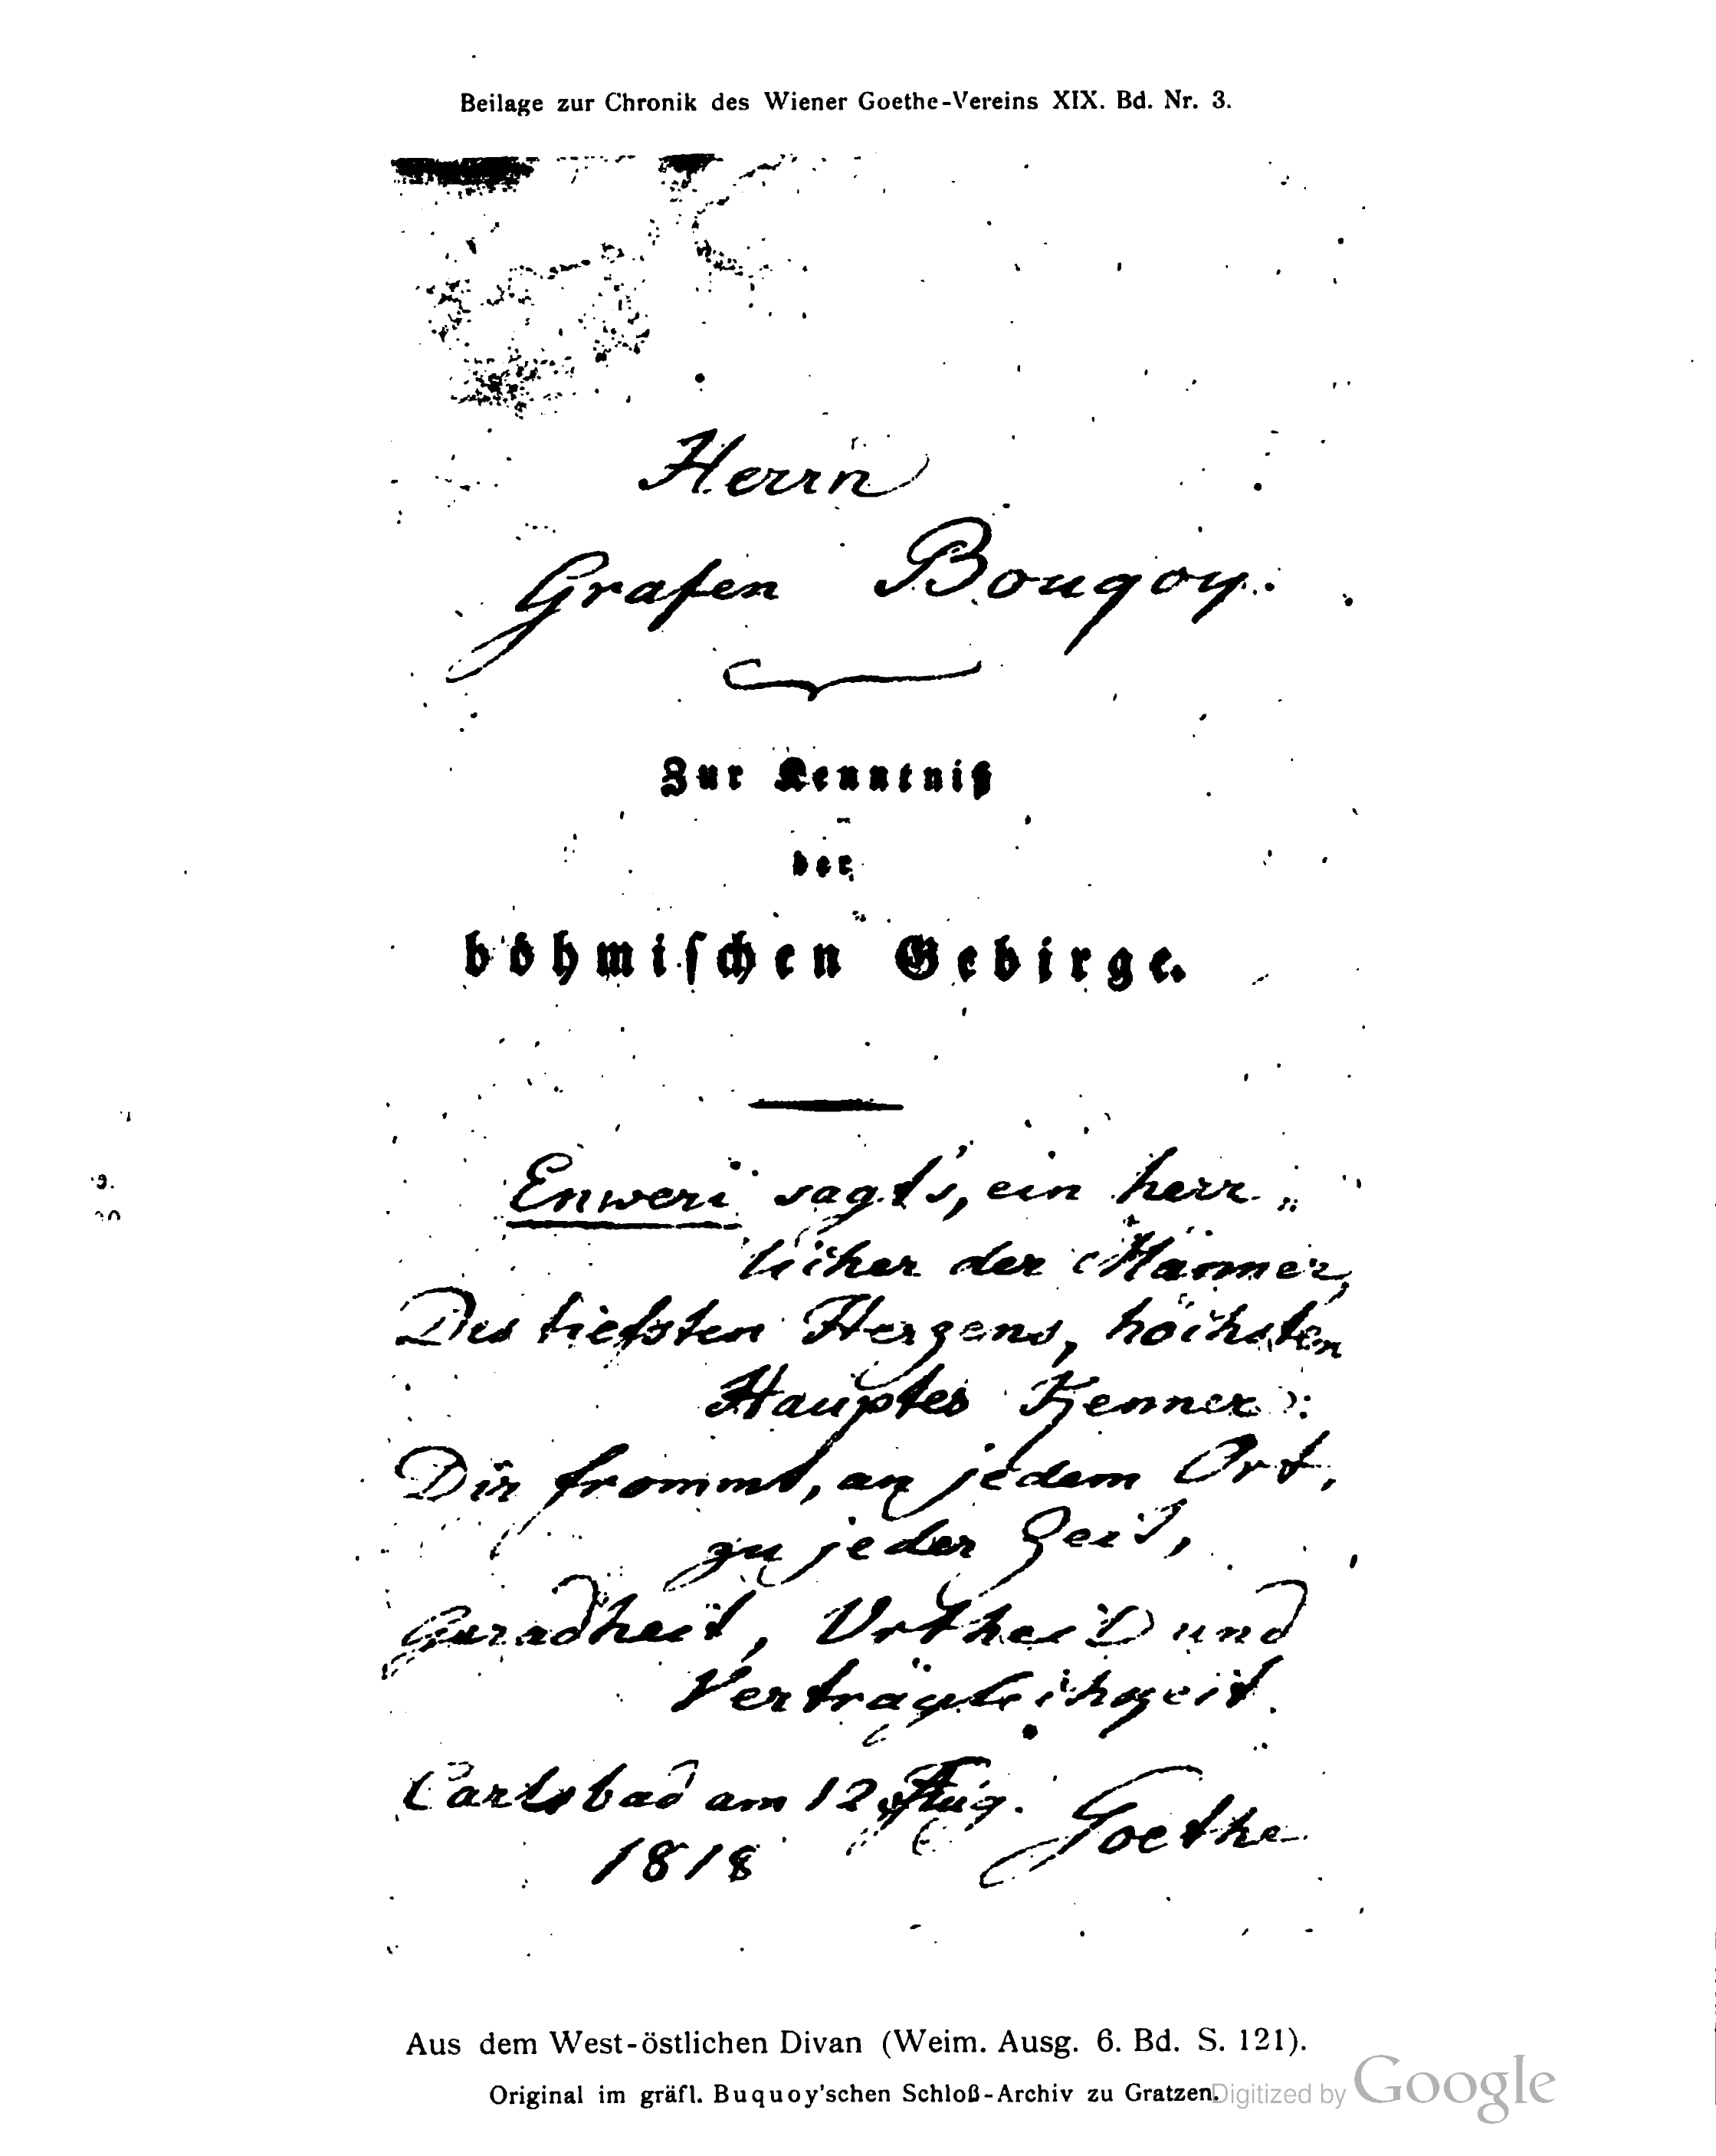 Beilage zur Chronik des Wiener Goethe-Vereins XIX. Bd. Nr. 3.
Herrn
Grafen Bouqoy.
Zur Kenntniß
der
böhmischen Gebirge.
Enweri sagt's, ein herr„
licher der Männer,
Des tiefsten Herzens, höchsten
Hauptes Kenner:
Dir frommt, an jedem Ort,
zu jeder Zeit,
Geradheit, Urtheil und
Verträglichkeit.
Carlsbad am 12 Aug.
1818
Goethe
Aus dem West-östlichen Divan (Weim. Ausg. 6. Bd. S. 121).
Original im gräfl. Buquoy'schen Schloß-Archiv zu Gratzen.
Digitized by Google